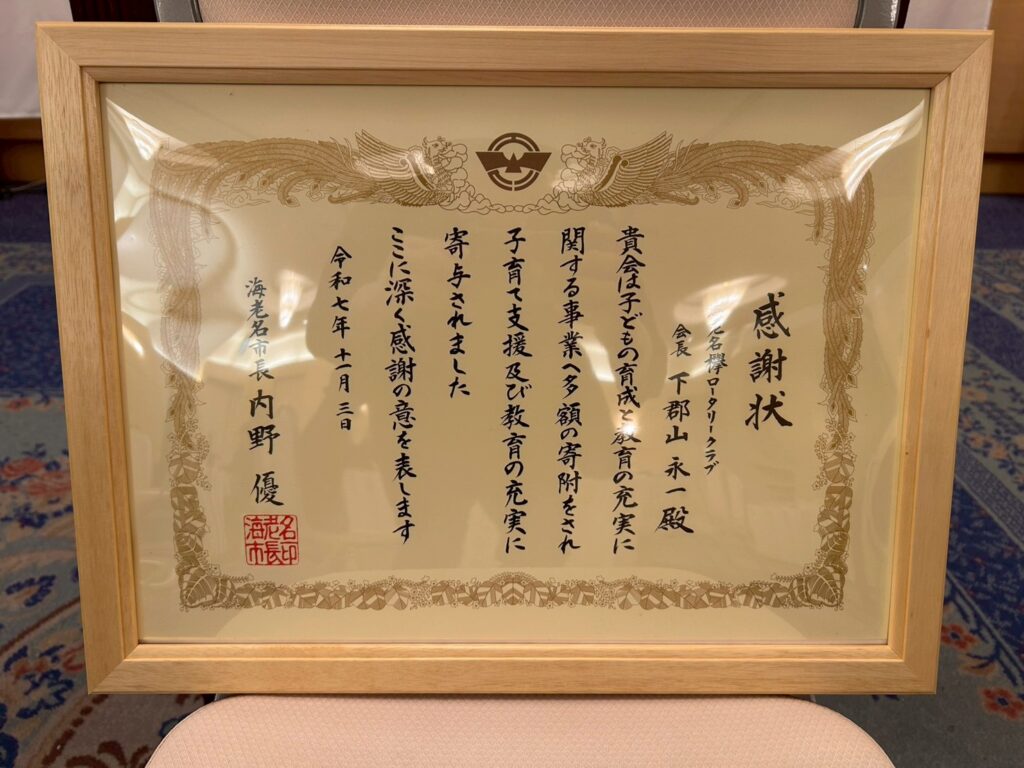 感謝状
老名欅ロータリークラブ
会長 下郡山永一殿
貴会は子どもの育成と教育の充実に
関する事業へ多額の寄附をされ
子育て支援及び教育の充実に
寄与されました
ここに深く感謝の意を表します
令和七年十一月三日
海老名市長 内野 優
海老名市長印